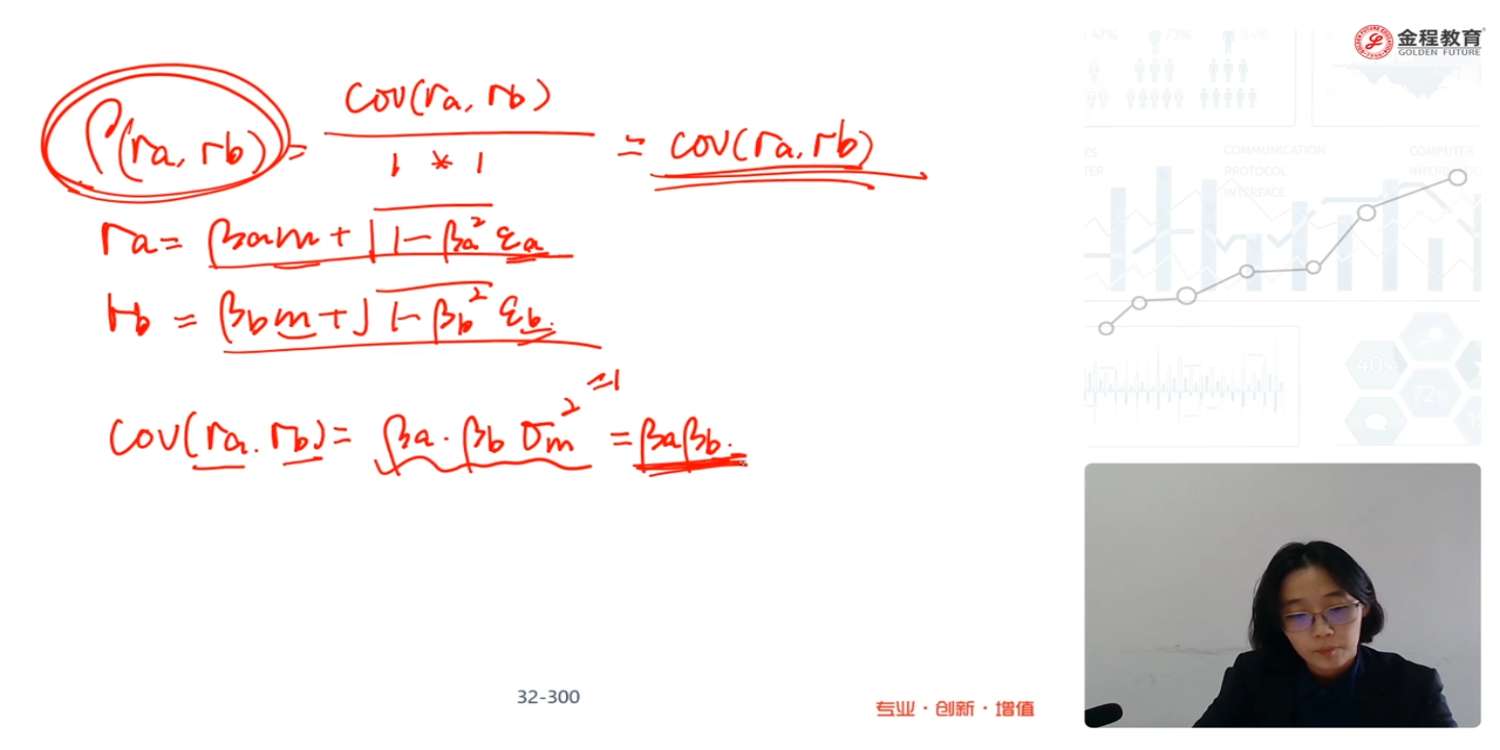 金程教育
GOLDEN FUTURE
ρ(ra, rb) = cov(ra, rb) / 1 * 1 = cov(ra, rb)
ra = βam + √1-βa² εa
rb = βbm + √1-βb² εb.
cov(ra. rb) = βa · βb σm² =1 = βaβb.
COMMUNICATION
PROTOCOL
INTERFACE
COMPUTER
75%
40%
72%
32-300
专业·创新·增值